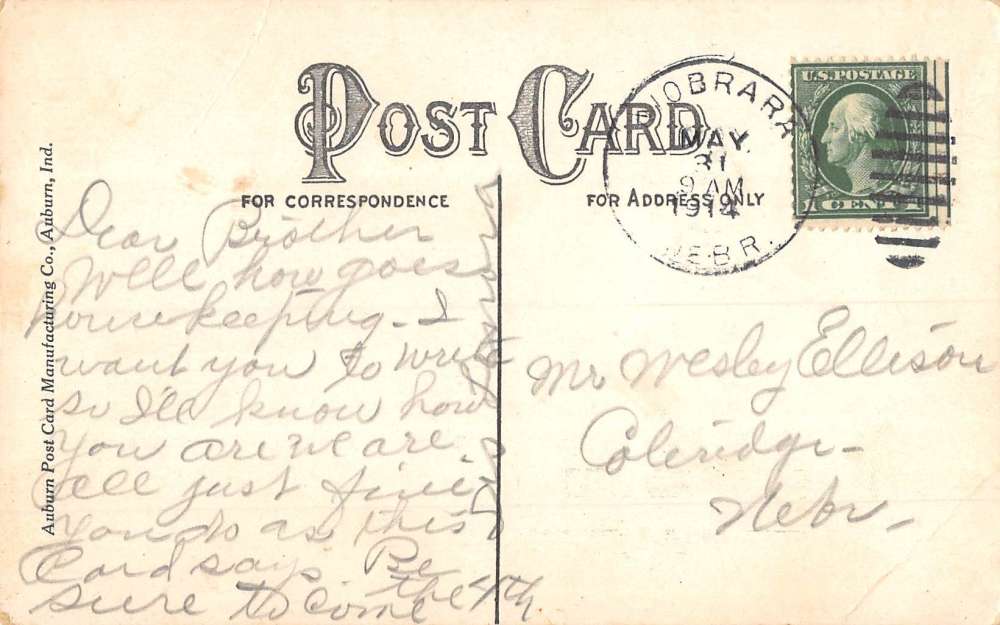 POST CARD
FOR CORRESPONDENCE
FOR ADDRESS ONLY
NIOBRARA
MAY
31
9 AM
1914
NEBR.
U.S. POSTAGE
1 CENT 1
Auburn Post Card Manufacturing Co., Auburn, Ind.
Dear Brother
Well how goes
housekeeping - I
want you to write
so I'll know how
you are we are
all just fine
you do as this
Card says Be
sure to come the 4th
Mr Wesley Ellison
Coleridge -
Nebr -